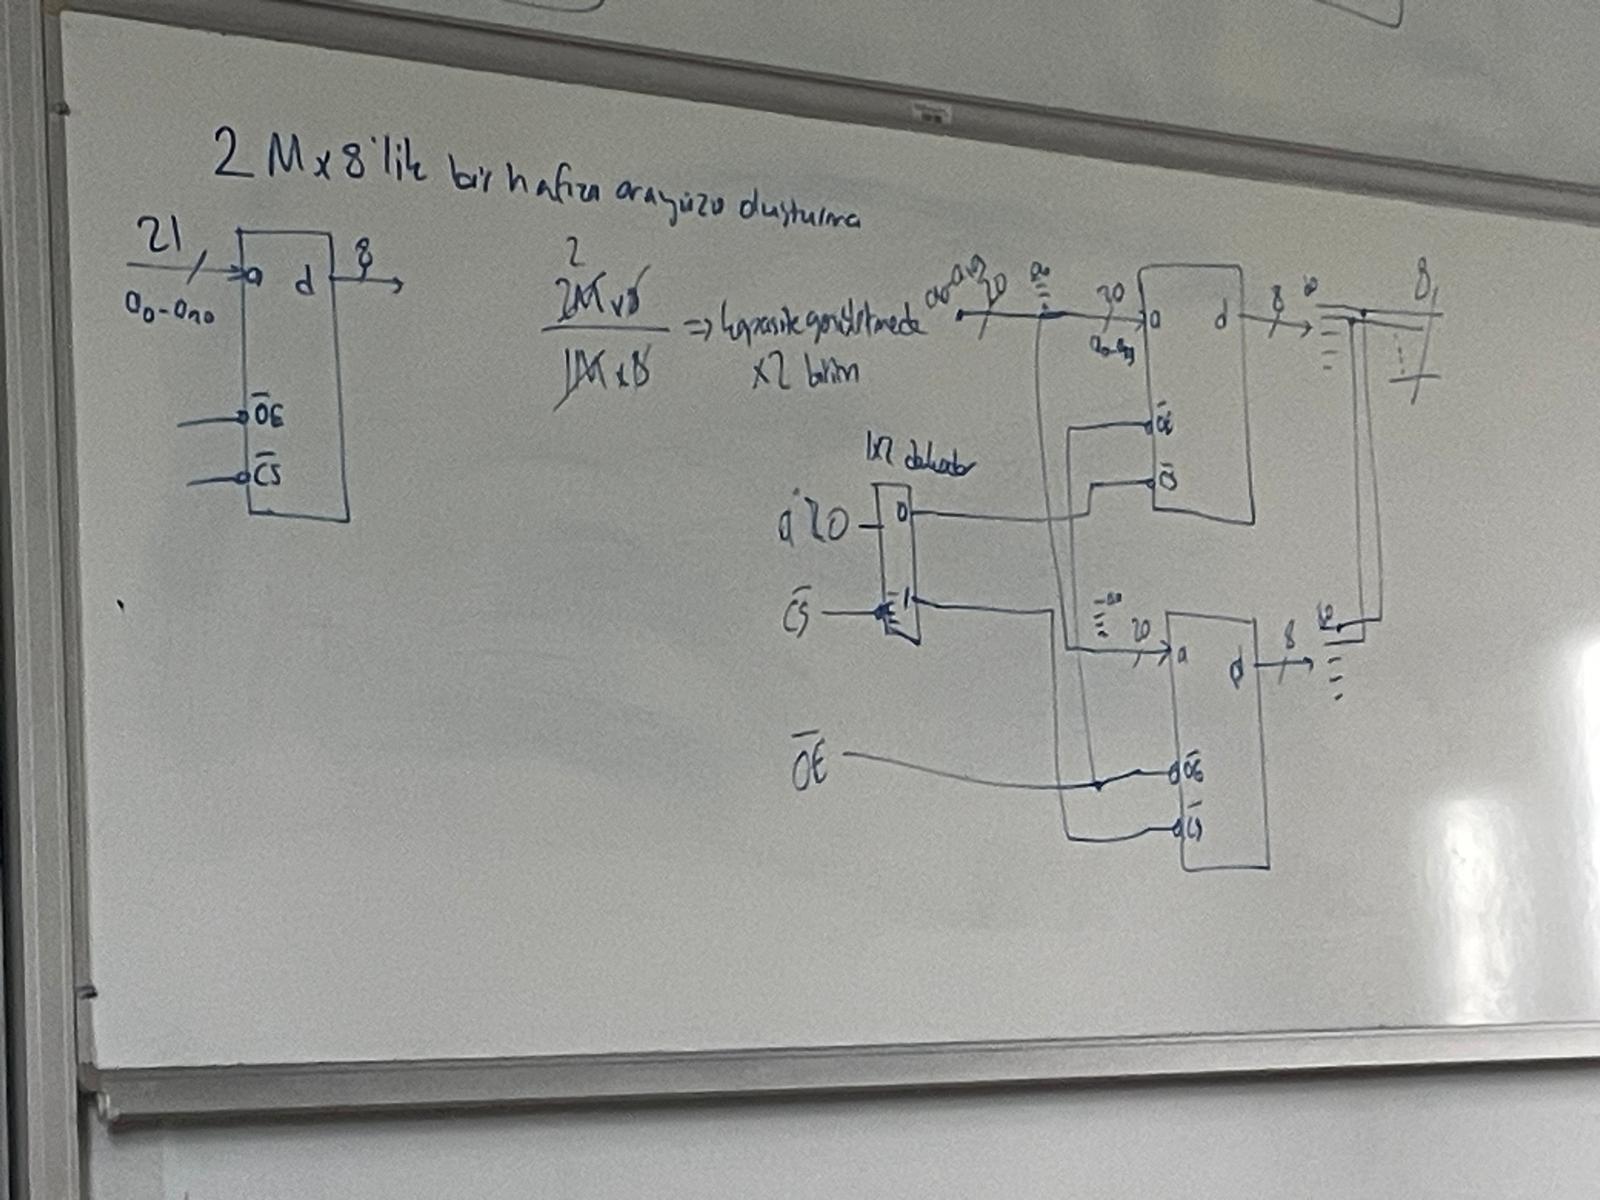 2 M x 8'lik bir hafıza arayüzü oluşturma
21
a
d
8
a0-a20
OE
CS
2
2M x 8
1M x 8
=> kapasite genişletmede
x2 birim
a0-a19
20
a0
20
a
a0-a19
d
8
8
OE
CS
1x2 dekoder
a20
0
CS
E
1
20
a
d
8
OE
OE
CS